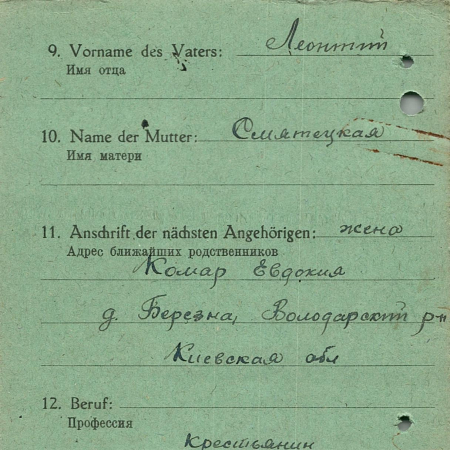 9. Vorname des Vaters: Леонтий
Имя отца
10. Name der Mutter: Смятецкая
Имя матери
11. Anschrift der nächsten Angehörigen: жена
Адрес ближайших родственников
Комар Евдокия
д. Березна, Володарский р-н
Киевская обл
12. Beruf:
Профессия
Крестьянин